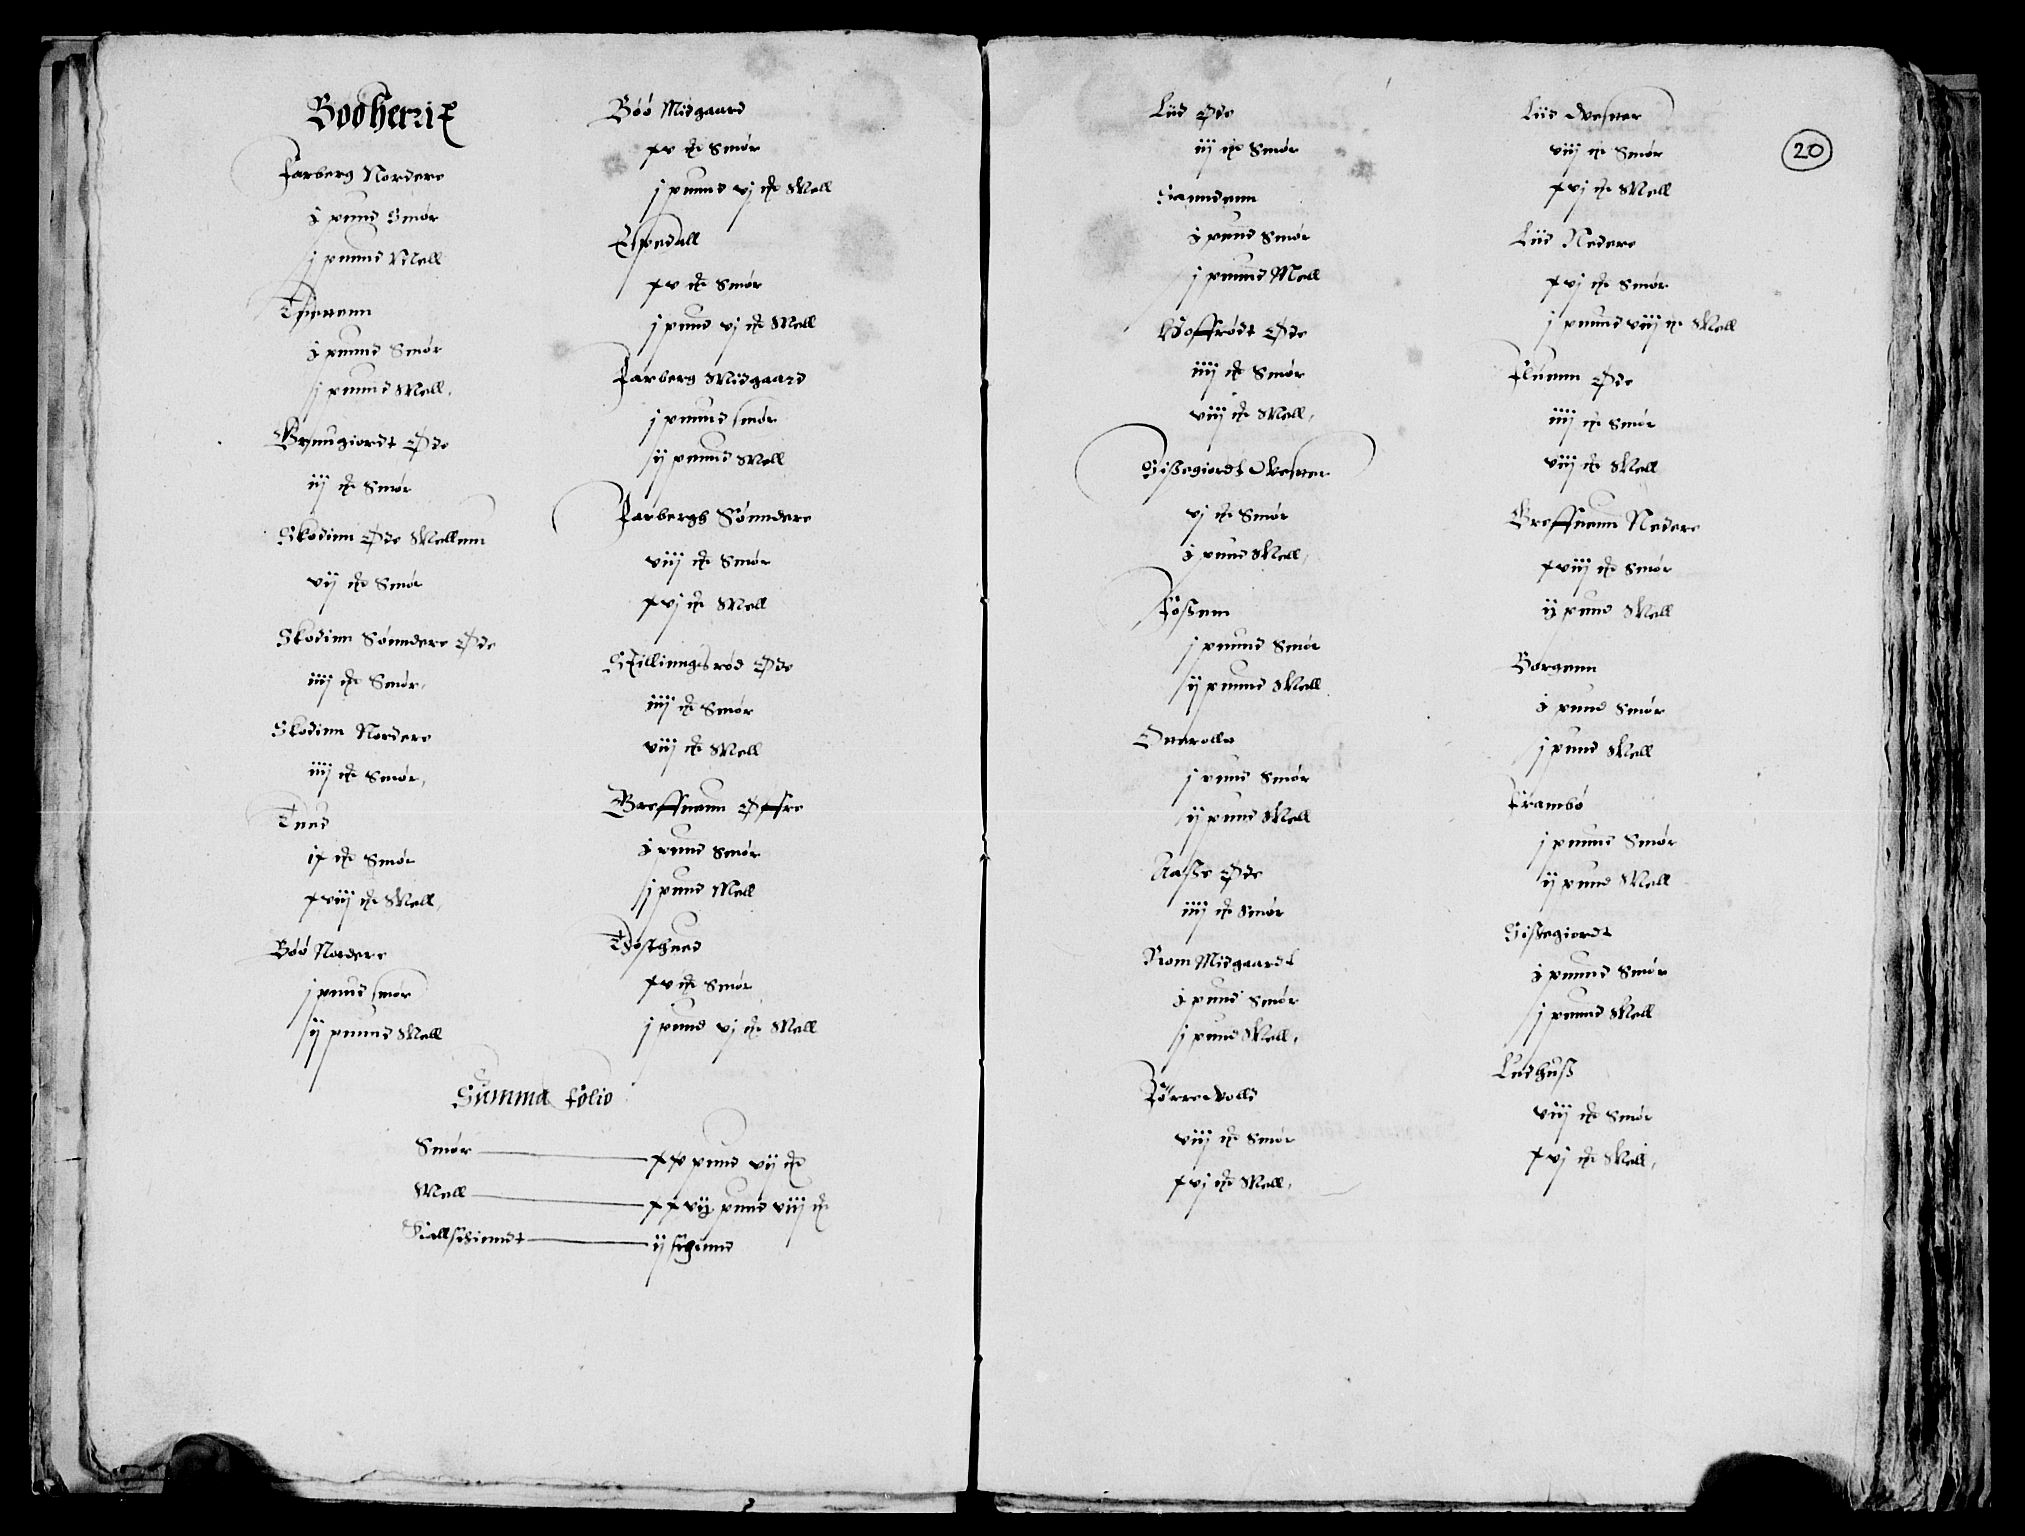 Boo herrit
Farberg Nordere
j pund Smør
j pund Mell
j pund Smør
j pund Mell.
Øde
iij ℔ Smør
Skodinn Øde Mellum
vij ℔ Smør
Skodinn Sønndere Øde
iiij ℔ Smør.
Skodinn Nordere
iiij ℔ Smør.
Tued
ix ℔ Smør
xviij ℔ Mell.
Böö Nordere
j pund smør
ij pund Mell
Böö Midgaard
xv ℔ Smør
j pund vj ℔ Mell
Espedall
xv ℔ Smør
j pund vj ℔ Mell
Farberg Midgaard
j pund smør
ij pund Mell
Farbergh Sønndere
viij ℔ Smør
xvj ℔ Mell
Skillinngsrød Øde
iiij ℔ Smør
viij ℔ Mell
Greffuenn Øffre
j pund Smør
j pund Mell
xv ℔ Smør
j pund vj ℔ Mell
Summa folio
Smør xx pund vij ℔
Mell xxvij pund viij ℔
ij
20
Liid Øde
iij ℔ Smør
j pund Smør
j pund Mell
Hoffrødt Øde
iiij ℔ Smør
viij ℔ Mell.
Sißegiordt Wester
vj ℔ Smør
j pund Mell.
Foßum
j pund Smør
ij pund Mell
j pund Smør
ij pund Mell
Aaße Øde
iiij ℔ Smør
Rom Midgaardt
j pund Smør
j pund Mell.
viij ℔ Smør
xvj ℔ Mell.
Liid Wester
viij ℔ Smør
xvj ℔ Mell
Liid Nedere
xvj ℔ Smør
j pund viij ℔ Mell
Øde
iiij ℔ Smør
viij ℔ Mell
Greffuenn Nedere
xviij ℔ Smør
ij pund Mell
Borgenn
j pund Smør
j pund Mell
Frambö
j pund Smør
ij pund Mell
Sißegiordt
j pund Smør
j pund Mell
Ludhuß
viij ℔ Smør
xvj ℔ Mell.